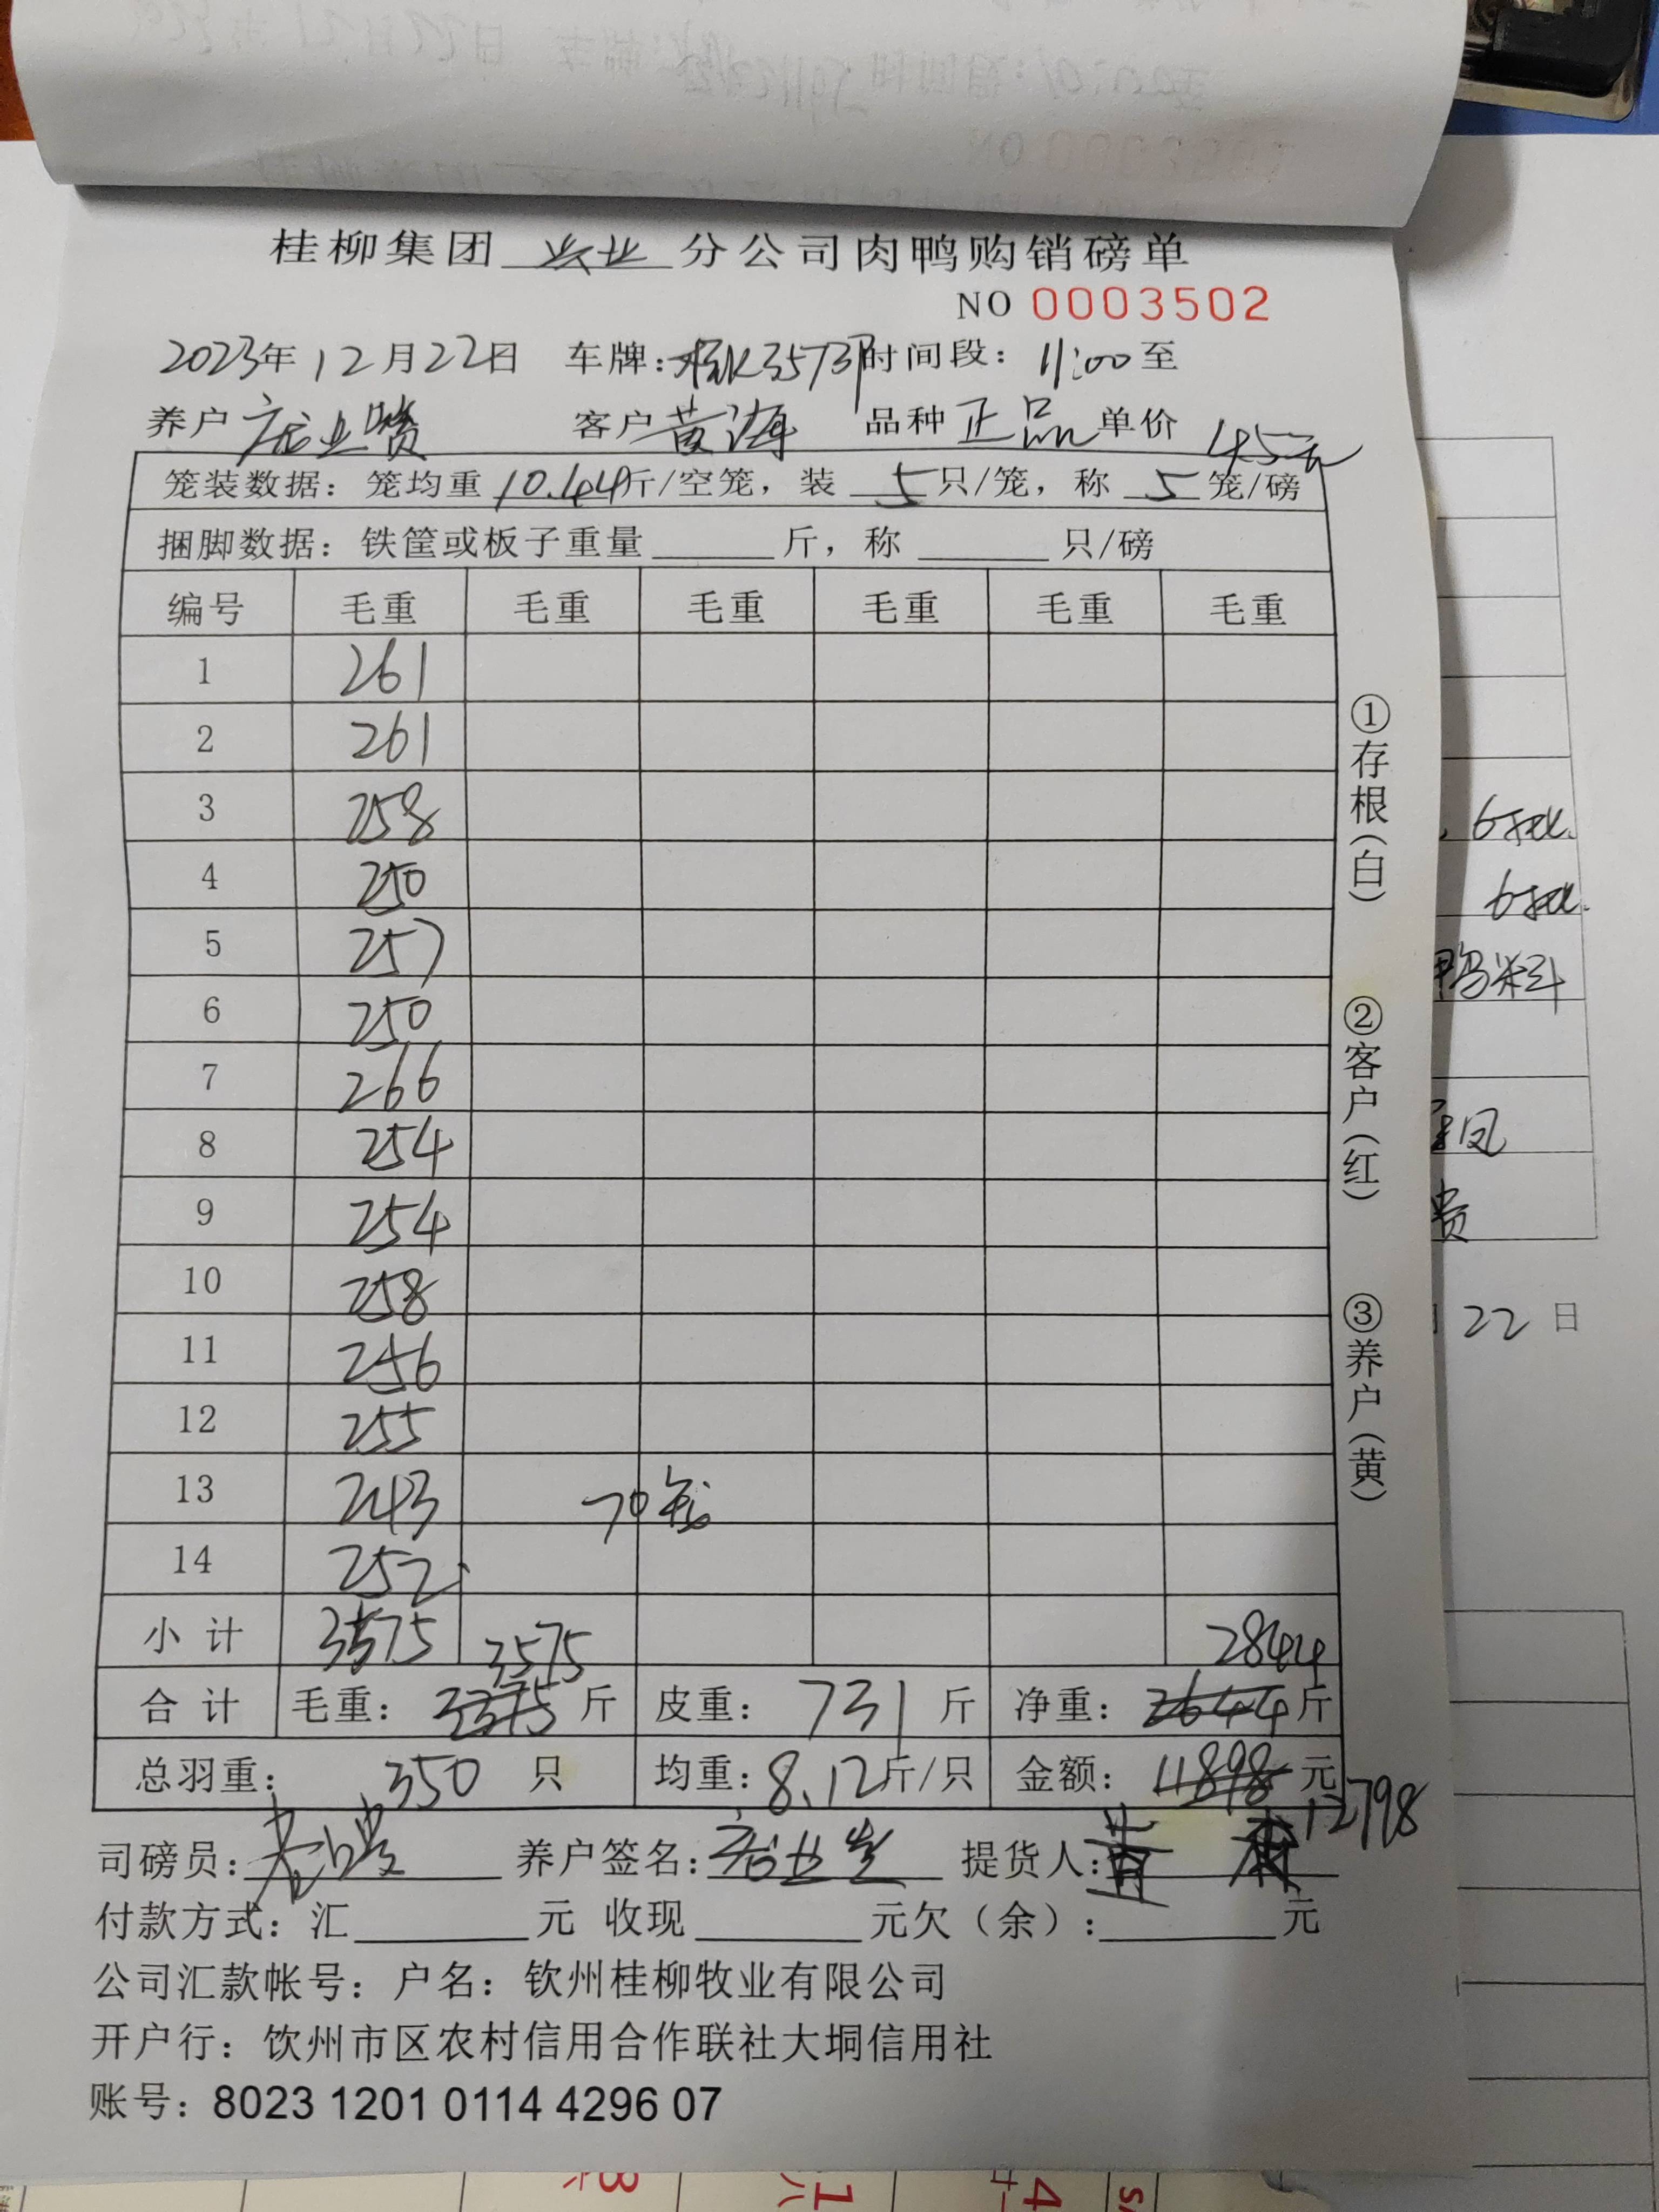 桂柳集团 兴业 分公司肉鸭购销磅单
NO 0003502
2023年12月22日 车牌：桂K357 时间段：11:00至
养户 庞业 客户 黄海 品种 正品 单价 4.5元
笼装数据：笼均重 10.44斤/空笼，装 5 只/笼，称 5 笼/磅
捆脚数据：铁筐或板子重量 斤，称 只/磅
编号 毛重 毛重 毛重 毛重 毛重 毛重
1 261
2 261
3 258
4 250
5 257
6 250
7 266
8 254
9 254
10 258
11 256
12 255
13 243 70笼
14 252
小计 3575 3575 2844
合计 毛重：3375 斤 皮重：731 斤 净重：2644 斤
总羽重：350 只 均重：8.12斤/只 金额：11898 元
12798
司磅员： 养户签名： 提货人：黄
付款方式：汇 元 收现 元欠（余）： 元
公司汇款帐号：户名：钦州桂柳牧业有限公司
开户行：饮州市区农村信用合作联社大垌信用社
账号：8023 1201 0114 4296 07
①存根（白）
②客户（红）
③养户（黄）
鸭料
凤
费
22 日